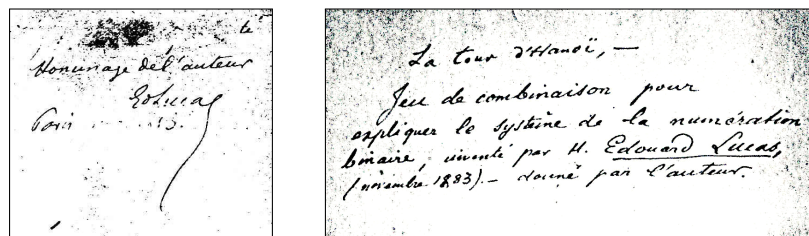 Hommage de l'auteur
EdLucas
La tour d'Hanoï, —
Jeu de combinaison pour
expliquer le système de la numération
binaire, inventé par M. Edouard Lucas,
(novembre 1883). — donné par l'auteur.